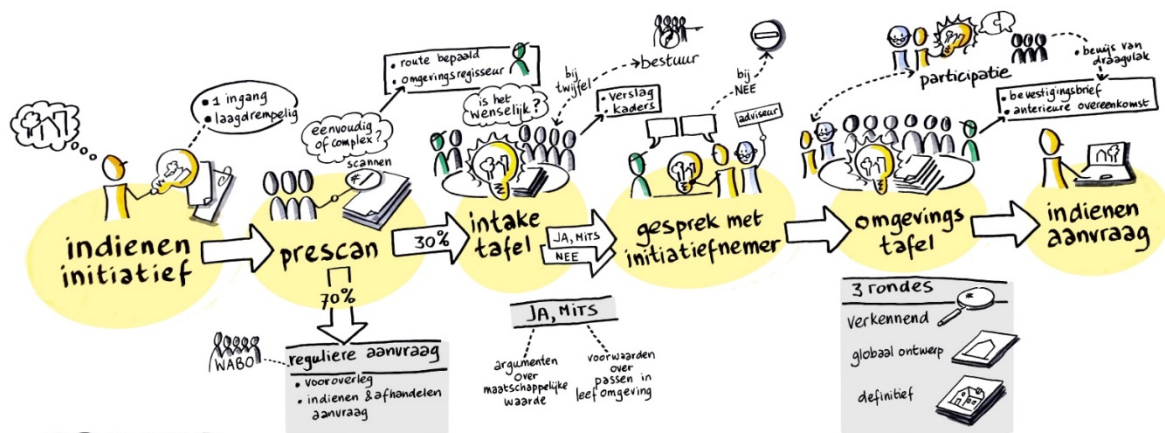 • 1 ingang
• laagdrempelig
indienen
initiatief
eenvoudig
of complex?
scannen
prescan
• route bepaald
• omgevingsregisseur
30%
70%
WABO
reguliere aanvraag
• vooroverleg
• indienen & afhandelen
aanvraag
is het
wenselijk?
bij
twijfel
bestuur
• verslag
• kaders
intake
tafel
JA, MITS
NEE
JA, MITS
argumenten
over
maatschappelijke
waarde
voorwaarden
over
passen in
leefomgeving
bij
NEE
adviseur
gesprek met
initiatiefnemer
participatie
• bewijs van
draagvlak
• bevestigingsbrief
• anterieure overeenkomst
omgevings
tafel
3 rondes
verkennend
globaal ontwerp
definitief
indienen
aanvraag